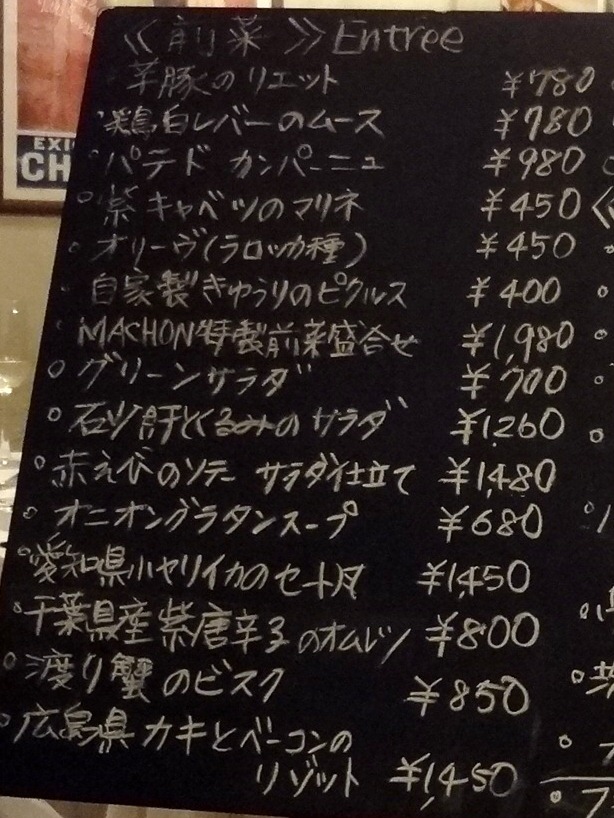 《前菜》Entrée
芋豚のリエット ¥780
鶏白レバーのムース ¥780
パテド カンパーニュ ¥980
紫キャベツのマリネ ¥450
オリーヴ(ラロッカ種) ¥450
自家製きゅうりのピクルス ¥400
MACHON特製前菜盛合せ ¥1,980
グリーンサラダ ¥700
砂肝とくるみのサラダ ¥1,260
赤えびのソテー サラダ仕立て ¥1,480
オニオングラタンスープ ¥680
愛知県小ヤリイカのセート風 ¥1,450
千葉県産紫唐辛子のオムレツ ¥800
渡り蟹のビスク ¥850
広島県カキとベーコンの
リゾット ¥1,450
EXI
CH